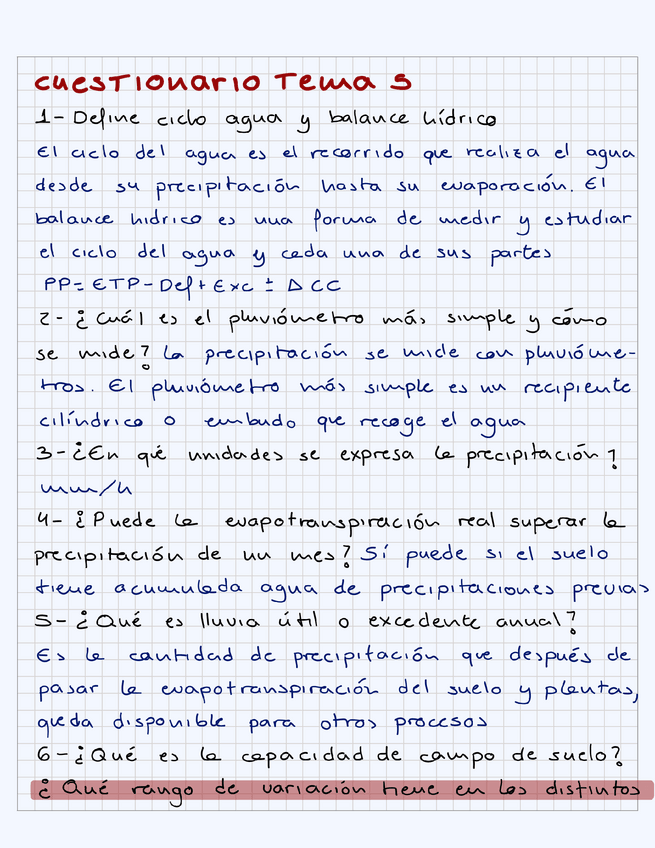 cuestionario Tema 5
1- Define ciclo agua y balance hídrico
El ciclo del agua es el recorrido que realiza el agua
desde su precipitación hasta su evaporación. El
balance hidrico es una forma de medir y estudiar
el ciclo del agua y cada una de sus partes
PP= ETP - Def + Exc ± Δ CC
2- ¿Cuál es el pluviómetro más simple y cómo
se mide? La precipitación se mide con pluvióme-
tros. El pluviómetro más simple es un recipiente
cilíndrico o embudo que recoge el agua
3- ¿En qé unidades se expresa la precipitación?
mm/h
4- ¿Puede la evapotranspiración real superar la
precipitación de un mes? Sí puede si el suelo
tiene acumulada agua de precipitaciones previas
5- ¿Qué es lluvia útil o excedente anual?
Es la cantidad de precipitación que después de
pasar la evapotranspiración del suelo y plantas,
queda disponible para otros procesos
6- ¿Qué es la capacidad de campo de suelo?
¿Qué rango de variación tiene en los distintos